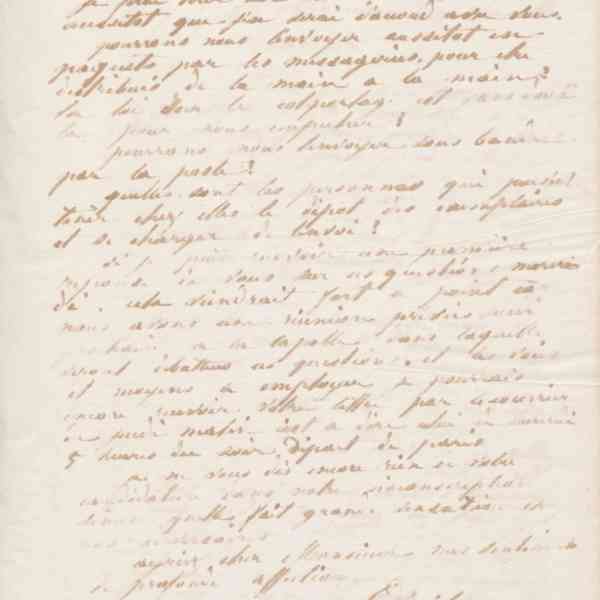 aussitot que j'en serai d'accord avec vous.
pourrons nous l'envoyer aussitot en
paquets par les messageries, pour etre
distribués de la main a la main ?
la loi sur le colportage est
la pour nous empecher !
pourrons nous l'envoyer sous bande
par la poste ?
quelles sont les personnes qui puissent
tenir chez elles le dépot des exemplaires
et se charger de l'envoi ?
si je puis avoir une première
réponse de vous sur ces questions mercredi
cela viendrait fort a point car
nous avons une réunion
a la dans laquelle
seront débattues ces questions, et les voies
et moyens a employer, je pourrais
encore recevoir votre lettre par le courrier
de matin c'est a dire celui de
5 heures du soir, départ de paris
je ne vous dis encore rien de votre
candidature dans notre circonscription
quelle fait grande sensation
nos adversaires
agréez cher Monsieur mes sentiments
de profonde affection